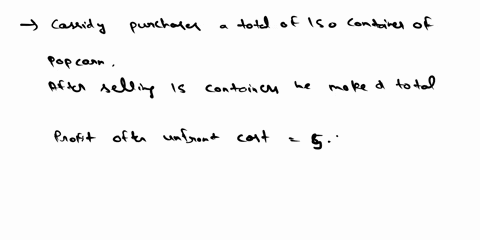 → Cassidy purchases a total of 150 container of
popcorn.
After selling 15 containers he make d total
Profit after unfront cost = 5.